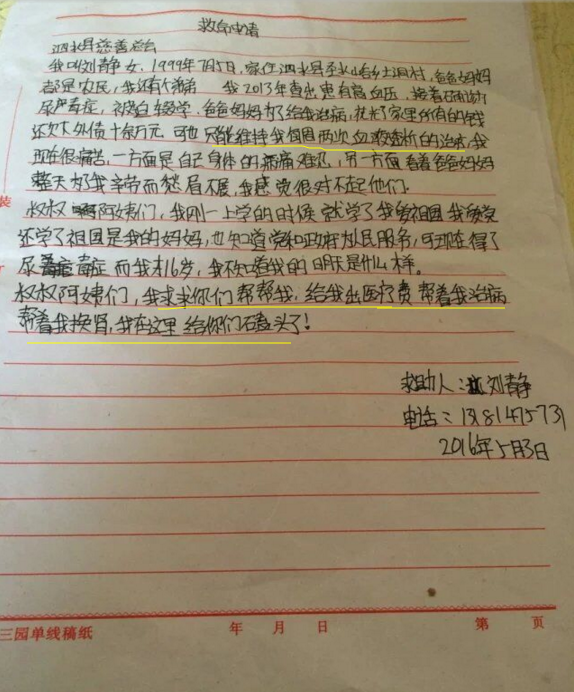 救命申请
泗水县慈善总会
我叫刘静 女，1999年7月5日，家住泗水县圣水峪乡土洞村，爸爸妈妈
都是农民，我还有个弟弟 我2013年查出患有高血压，接着确诊
尿严毒症，被迫辍学，爸爸妈妈为了给我治病，就花了家里所有的钱
还欠下外债十余万元，可也只能维持我每周两次血液透析的治疗，我
现在很痛苦，一方面是自己身体的病痛难忍，另一方面看着爸爸妈妈
整天为我辛苦而愁眉不展，我感觉很对不起他们。
叔叔阿姨们，我刚一上学的时候就学了我爱祖国 我爱党
还学了祖国是我的妈妈，也知道党和政府为人民服务，可现在得了
尿毒症 而我才16岁，我不知道我的明天是什么样。
叔叔阿姨们，我求求你们帮帮我，给我出医疗费 帮着我治病
帮着我换肾，我在这里给你们磕头了！
求助人：刘静
电话：
2016年5月3日
三园单线稿纸 年 月 日 第 页
装